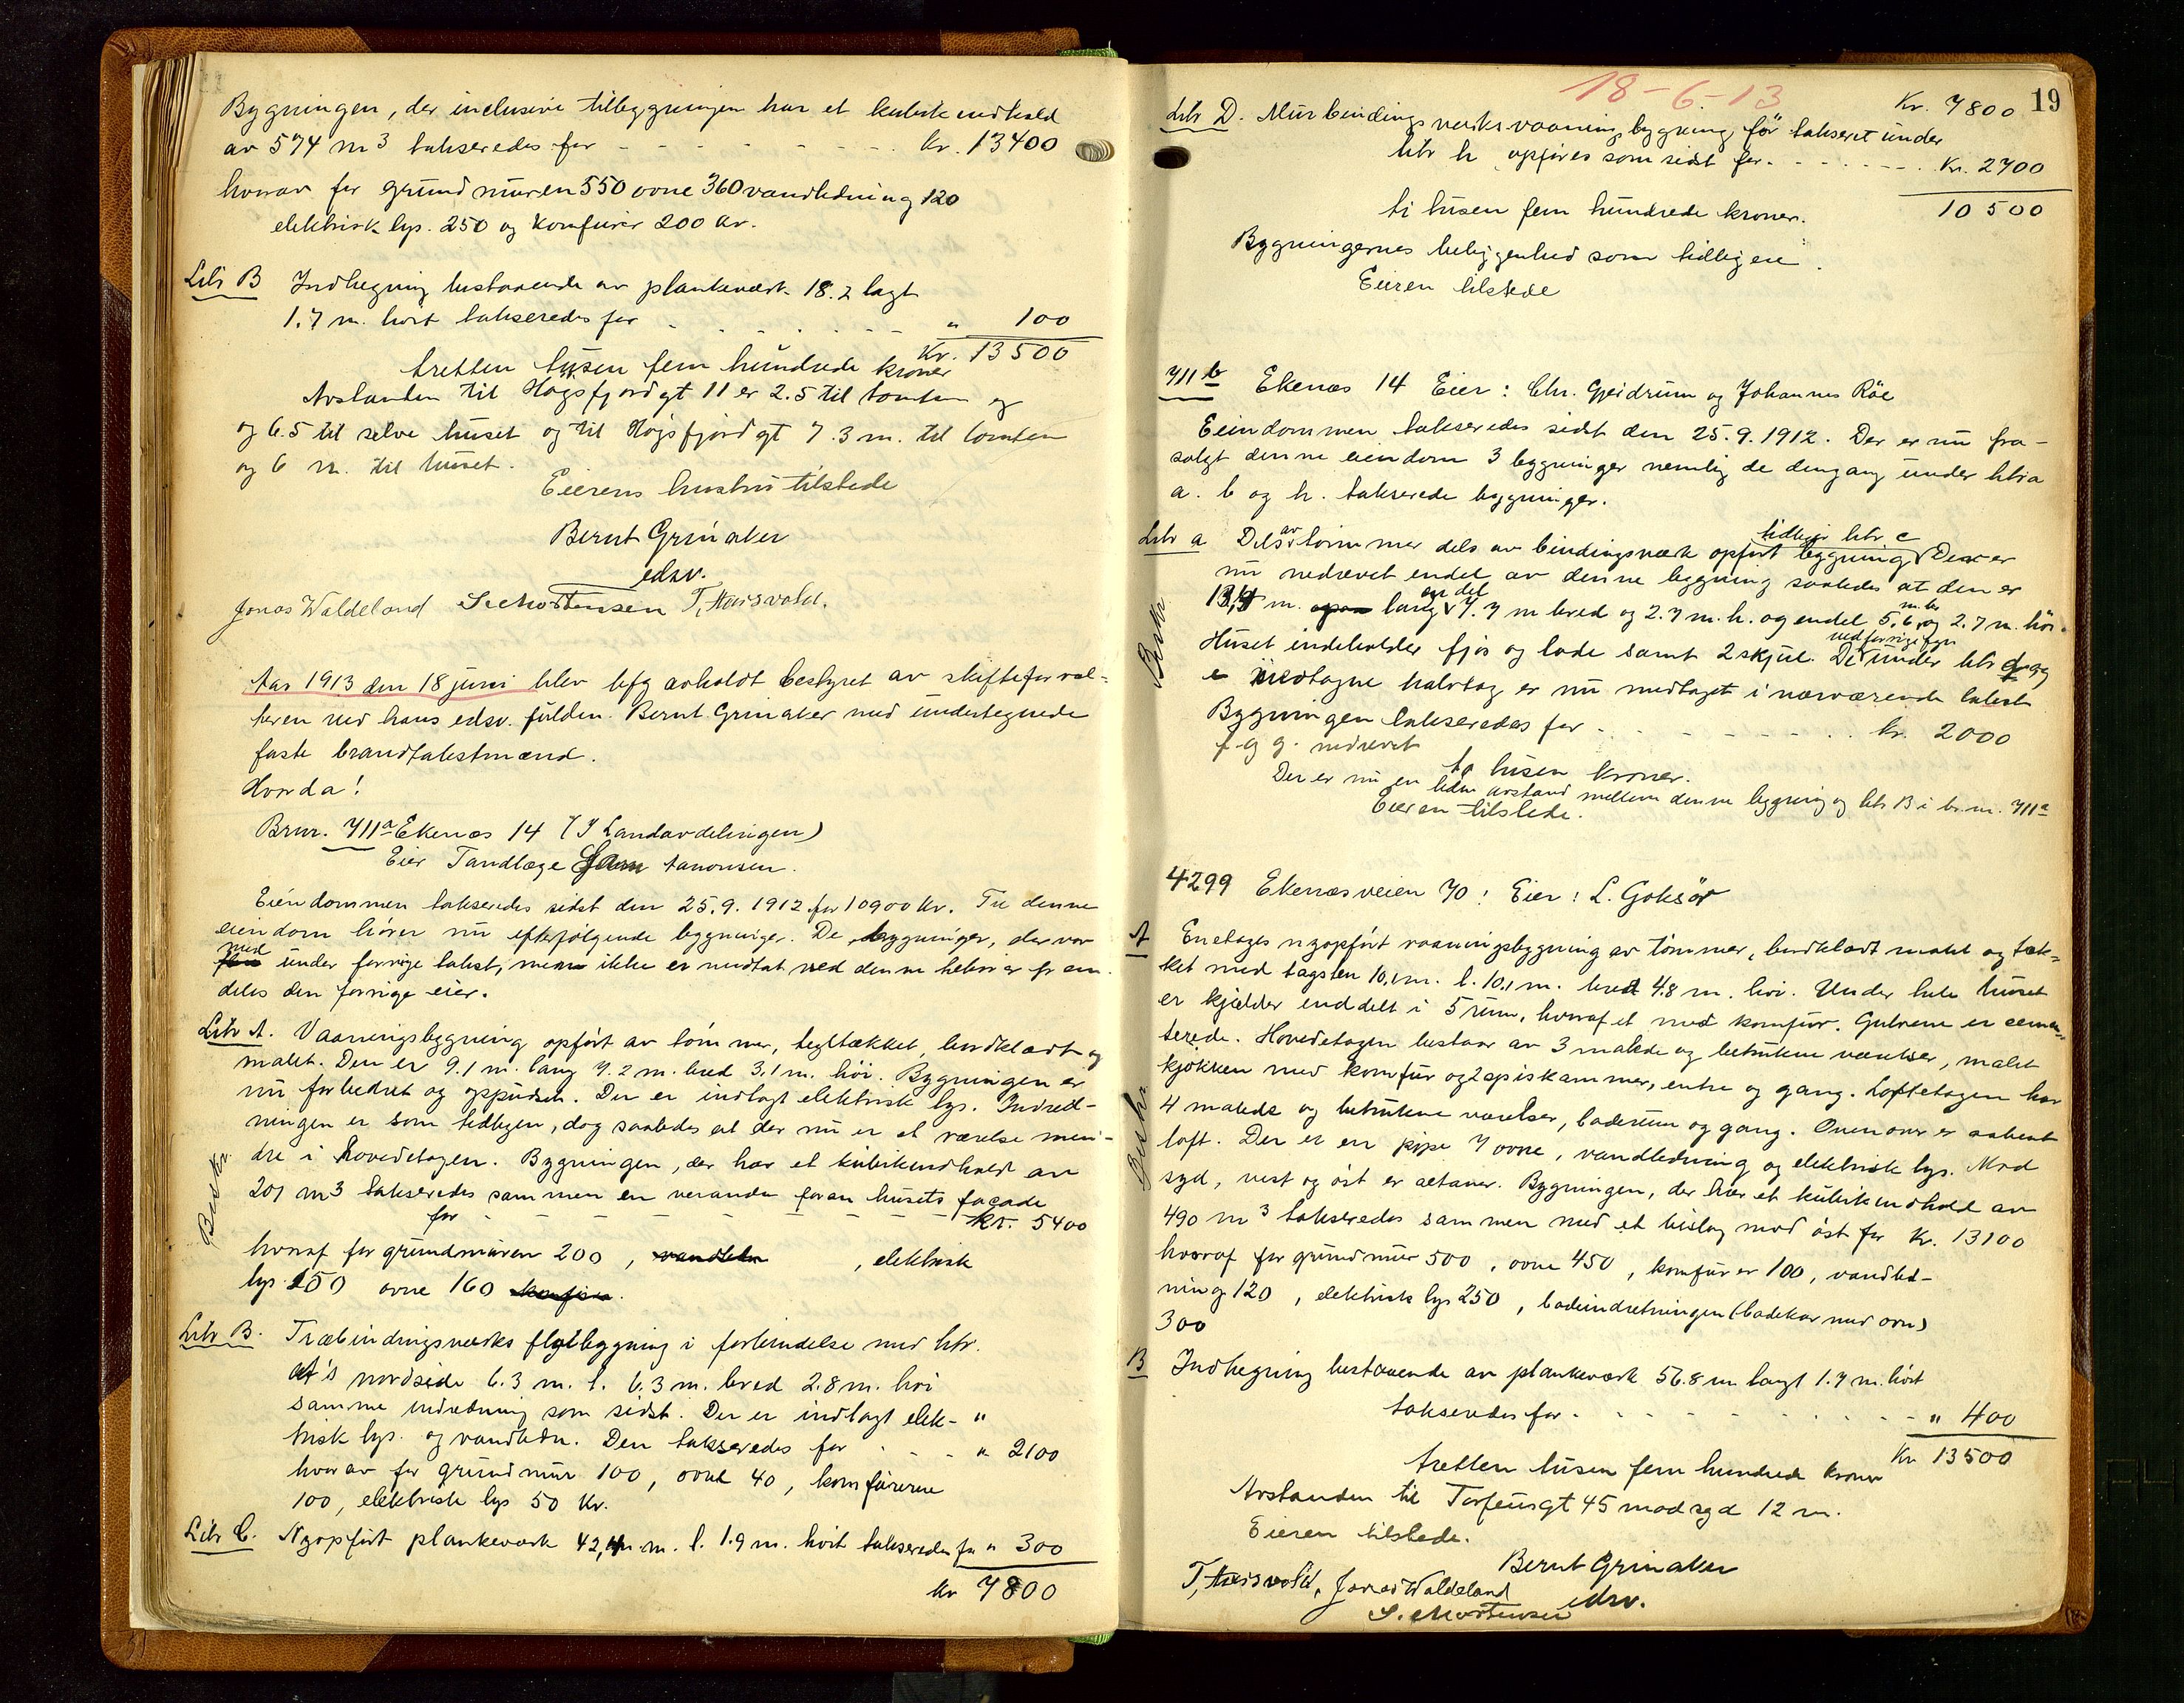 Bygningen, der inclusive tilbygningen har et kubikindhold
av 574 m3 takseredes for - - - - - - - Kr. 13400
hvorav for grundmuren 550 ovne 360 vandledning 120
elektrisk lys. 250 og komfurer 200 kr.
Litr B Indhegning bestaaende av plankeværk 18.2 langt
1.7 m. høit takseredes for - - - - - - " 100
Kr. 13500
tretten tusen fem hundrede kroner
Avstanden til Høgsfjordgt 11 er 2.5 til tomten og
og 6.5 til selve huset og til Høgsfjordgt 7. 3 m. til tomten
og 6 m. til huset.
Eierens hustru tilstede
Bernt Grinaker
edsv.
Jonas Waldeland S. Mortensen T. Husvold.
Aar 1913 den 18 juni blev bfg avholdt bestyret av skifteforval-
teren ved hans edsv. fuldm. Bernt Grinaker med undertegnede
faste brandtakstmænd.
Hvorda!
Brnr. 711a Ekenæs 14 (I Landavdelingen)
Eier Tandlæge Aanonsen.
Eiendommen takseredes sidst den 25.9.1912 for 10900 Kr. Til denne
eiendom hører nu efterfølgende bygninger. De bygninger, der var
med under forrige takst, men ikke er medtat ved denne tilhører frem-
deles den forrige eier.
Litr A. Vaaningsbygning opført av tømmer, tegltækket, bordklædt og
malet. Den er 9.1 m. lang 7.2 m. bred 3.1 m. høi. Bygningen er
nu forbedret og oppudset. Der er indlagt elektrisk lys. Indred-
ningen er som tidligere, dog saaledes at der nu er et værelse min-
dre i hovedetagen. Bygningen, der har et kubikindhold av
Beskr.
201 m3 takseredes sammen en veranda foran husets façade
for - - - - - - - - kr. 5400
hvoraf for grundmuren 200, , elektrisk
lys 150 ovne 160 .
Litr B. Træbindingsværks fløibygning i forbindelse med litr.
A's nordside 6.3 m. l. 6.3 m. bred 2.8 m. høi
samme indretning som sidst. Der er indlagt elek- "
trisk lys. og vandledn. Den takseredes for - - - " 2100
hvorav for grundmur 100, ovne 40, komfurerne
100, elektrisk lys 50 Kr.
Litr C. Nyopført plankeværk 42, m. l. 1.9 m. høit takseredes for " 300
Kr 7800
18-6-13
19
Kr. 7800
Litr D. Murbindingsverks vaaningsbygning før takseret under
litr h opføres som sidst for - - - - - - Kr. 2700
10500
ti tusen fem hundrede kroner.
Bygningernes beliggenhed som tidligere.
Eieren tilstede
711 b Ekenæs 14 Eier: Chr. Gjeidrum og Johannes Röe
Eiendommen takseredes sidst den 25.9.1912. Der er nu fra-
solgt denne eiendom 3 bygninger nemlig de dengang under litra
a. b og h. takserede bygninger.
tidligere litr. c
Litr a Dels av tømmer dels av bindingsværk opført bygning Der er
nu nedrevet endel av denne bygning saaledes at den er
m. lang en del 7.7 m bred og 2.7 m. h. og endel 5.6 m. br og 2.7 m. høi.
Beskr.
Huset indeholder fjøs og lade samt 2 skjul. De ved forrige under litr d og
e medtagne halvtag er nu medtaget i nærværende takst
Bygningen takseredes for - - - - - - - kr. 2000
f og g. nedrevet
to tusen kroner.
Der er nu en avstand mellem denne bygning og litr B i br.nr. 711a
Eieren tilstede.
4299 Ekenæsveien 70: Eier: L. Goksör
A Enetages nyopført vaaningsbygning av tømmer, bordklædt malet og tæk-
ket med tagsten 10,1 m. l. 10,1 m. bred 4.8 m. høi. Under hele huset
er kjælder inddelt i 5 rum, hvoraf et med komfur. Gulvene er cemen-
terede. Hovedetagen bestaar av 3 malede og betrukne værelser, malet
kjøkken med komfur og spiskammer, entre og gang. Loftetagen har
Beskr.
4 malede og betrukne værelser, baderum og gang. Ovenover er aabent
loft. Der er en pipe 7 ovne, vandledning og elektrisk lys. Mod
syd, vest og øst er altaner. Bygningen, der har et kubikindhold av
490 m3 takseredes sammen med et bislag mod øst for Kr. 13100
hvoraf for grundmur 500, ovne 450, komfurer 100, vandled-
ning 120, elektrisk lys 250, badeindretningen (badekar med ovn)
300
B Indhegning bestaaende av plankeværk 56.8 m langt 1.7 m. høit
takseredes for - - - - - - - " 400
Kr 13500
tretten tusen fem hundrede kroner
Avstanden til Torfeusgt 45 mod syd 12 m.
Eieren tilstede.
Bernt Grinaker
edsv.
T. Husvold, Jonas Waldeland
S. Mortensen